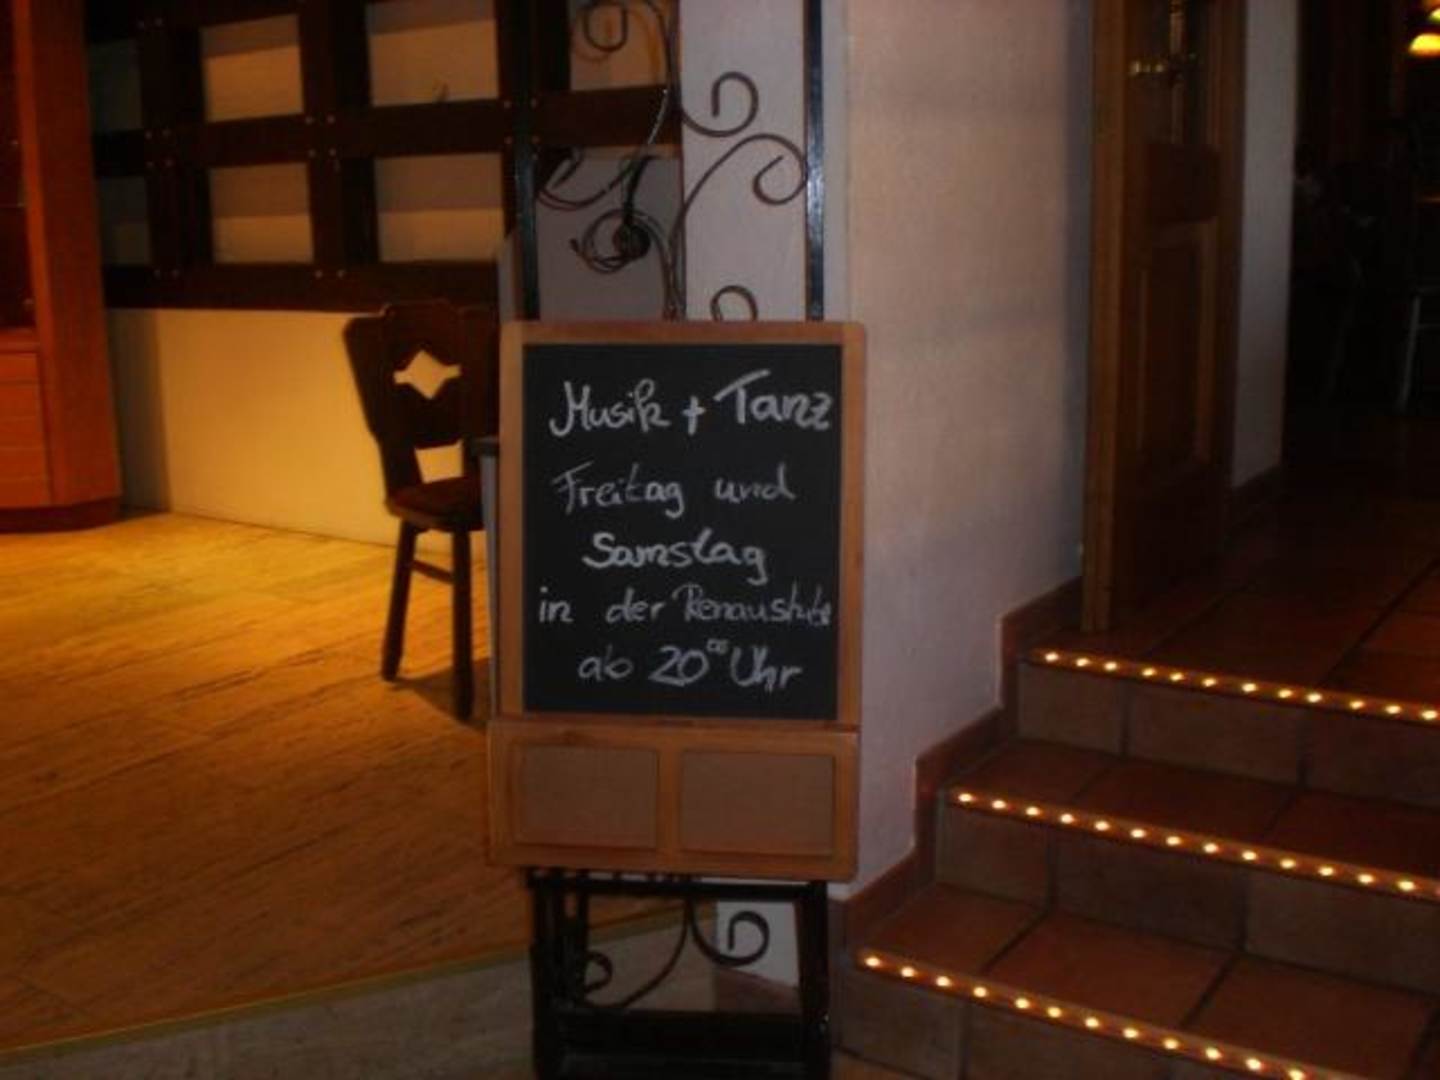 Musik + Tanz
Freitag und
Samstag
in der Renaustube
ab 20⁰⁰ Uhr